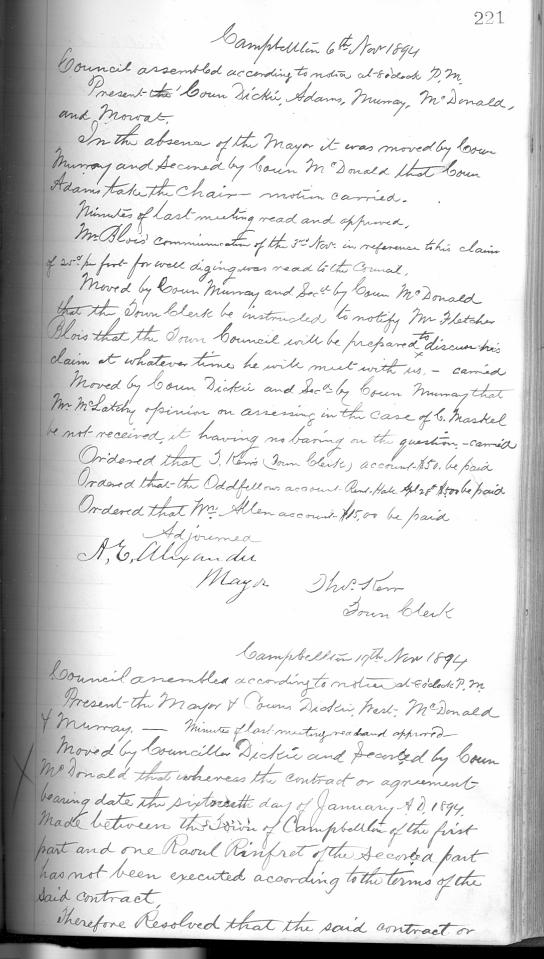 221
Campbellton 6th Nov 1894
Council assembled according to notice at 8 o'clock P.M.
Present the Coun Dickie, Adams, Murray, McDonald,
and Mowat.
In the absence of the Mayor it was moved by Coun
Murray and Seconed by Coun McDonald that Coun
Adams take the Chair – motion carried.
Minutes of last meeting read and approved.
Mr Blois' communication of the 3rd Nov. in reference to his claim
of 25cts per foot for well diging was read to the Council.
Moved by Coun Murray and Secd by Coun McDonald
that the Town Clerk be instructed to notify Mr Fletcher
Blois that the Town Council will be prepared to discuss his
claim at whatever time he will meet with us. – carried
Moved by Coun Dickie and Secd by Coun Murray that
Mr McLatchy opinion on assessing in the case of C. Maskel
be not received, it having no baring on the question – carried
Ordered that T. Kerr (Town Clerk) account $50. be paid
Ordered that the Oddfellows account Rent, Hall Apl 28th $5.00 be paid
Ordered that Wm Allen account $15.00 be paid
Adjourned
A, E, Alexander
Mayor Thos. Kerr
Town Clerk
Campbellton 17th Nov 1894
Council assembled according to notice at 8 o'clock P.M.
Present the Mayor & Couns Dickie, West, McDonald
& Murray. — Minutes of last meeting read and approved
Moved by Councillor Dickie and Seconded by Coun
McDonald that whereas the contract or agreement
bearing date the sixteenth day of January A.D. 1894.
Made between the Town of Campbellton of the first
part and one Raoul Rinfret of the Seconed part
has not been executed according to the terms of the
said contract,
Therefore Resolved that the said contract or